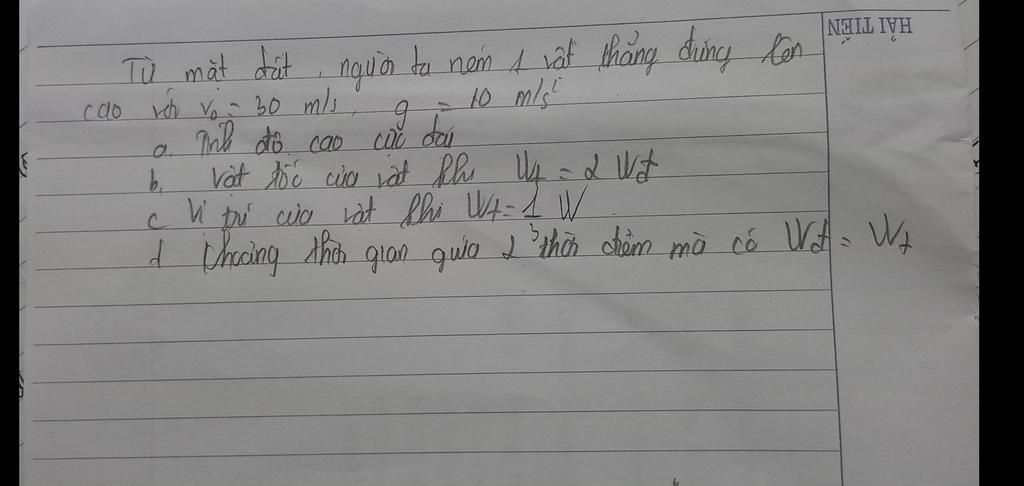 HẢI TIẾN
Từ mặt đất, người ta ném 1 vật thẳng đứng lên
cao với v₀ = 30 m/s, g = 10 m/s²
a. Tính độ cao cực đại
b. Vật tốc của vật khi Wt = 2 Wđ
c Vị trí của vật khi Wt = 1/3 W
d Khoảng thời gian giữa 2 thời điểm mà có Wđ = Wt